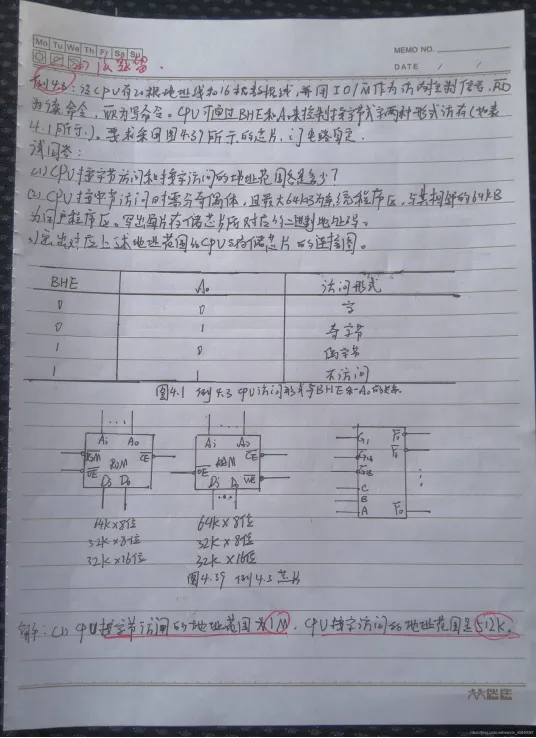 Mo Tu We Th Fr Sa Su
MEMO NO.
DATE / /
例4.3:设CPU有20根地址线和16根数据线,并用IO/M作为访存控制信号,RD
为读命令,WR为写命令。CPU可通过BHE和A0来控制按字节或字两种形式访存(如表
4.1所示)。要求采用图4.39所示的芯片,门电路自定。
试回答:
(1) CPU按字节访问和按字访问的地址范围各是多少?
(2) CPU按字节访问时需分奇偶体,且最大64KB为系统程序区,与其相邻的64KB
为用户程序区。写出每片存储芯片所对应的二进制地址码。
(3)画出对应上述地址范围的CPU与存储芯片的连接图。
BHE A0 访问形式
0 0 字
0 1 奇字节
1 0 偶字节
1 1 不访问
图4.1 例4.3 CPU访问形式与BHE和A0的关系
Ai A0 Ai A0 G1 Y7
PGM ROM CE RAM CE G2A Y6
OE OE WE G2B
Dj D0 Dj D0 C
B
A Y0
64K×8位 64K×8位
32K×8位 32K×8位
32K×16位 32K×16位
图4.39 例4.3芯片
解:(1) CPU按字节访问的地址范围为1M,CPU按字访问的地址范围是512K。